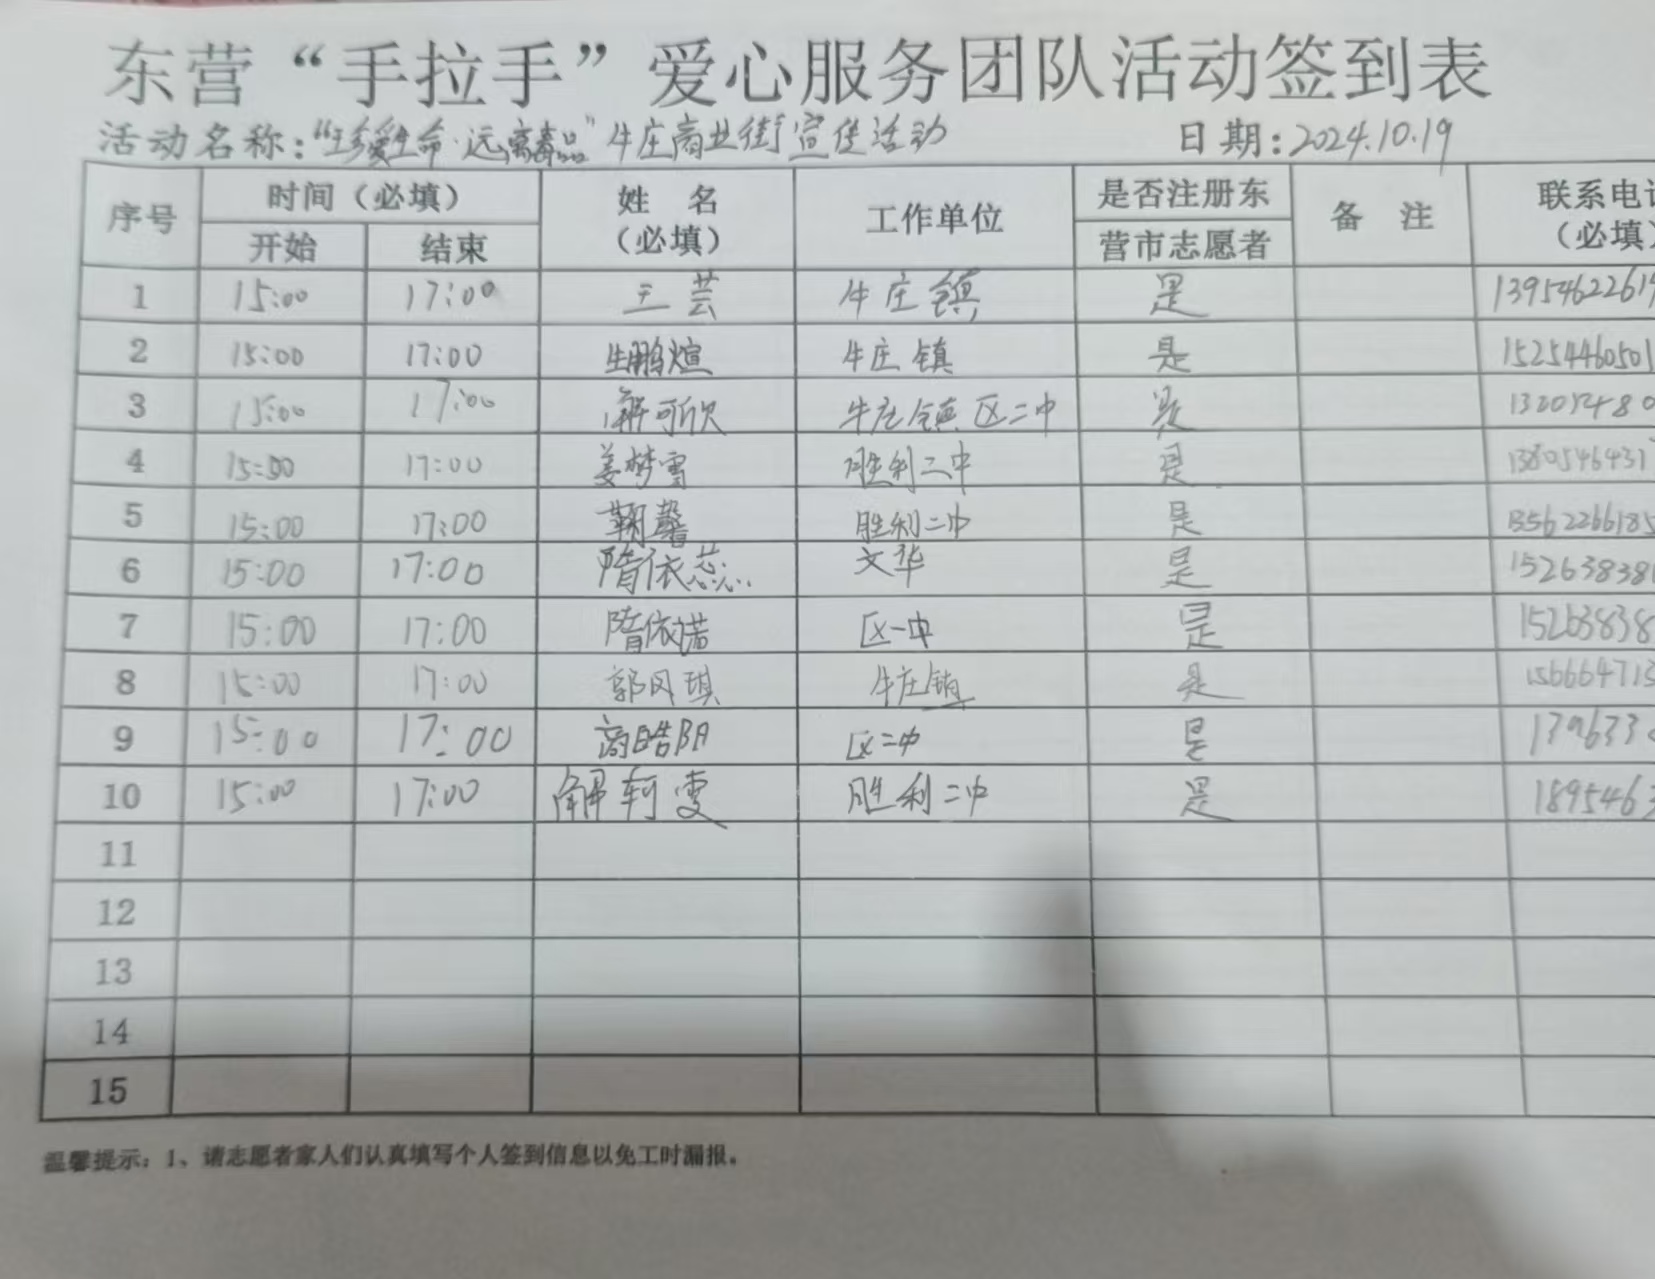 东营“手拉手”爱心服务团队活动签到表
活动名称：“珍爱生命·远离毒品”牛庄商业街宣传活动 日期：2024.10.19
序号 时间（必填） 姓 名（必填） 工作单位 是否注册东营市志愿者 备 注 联系电（必填）
开始 结束
1 15:00 17:00 王芸 牛庄镇 是 1395462261
2 15:00 17:00 生鹏煊 牛庄镇 是 15254460501
3 15:00 17:00 解可欣 牛庄镇区二中 是
4 15:00 17:00 姜梦雪 胜利二中 是 1380546431
5 15:00 17:00 鞠馨 胜利二中 是 13562266185
6 15:00 17:00 隋依 文华 是 15263838
7 15:00 17:00 隋依诺 区一中 是 15263838
8 15:00 17:00 郭风琪 牛庄镇 是 156664713
9 15:00 17:00 高皓阳 区二中 是 139633
10 15:00 17:00 解轲雯 胜利二中 是 1895463
11
12
13
14
15
温馨提示：1、请志愿者家人们认真填写个人签到信息以免工时漏报。